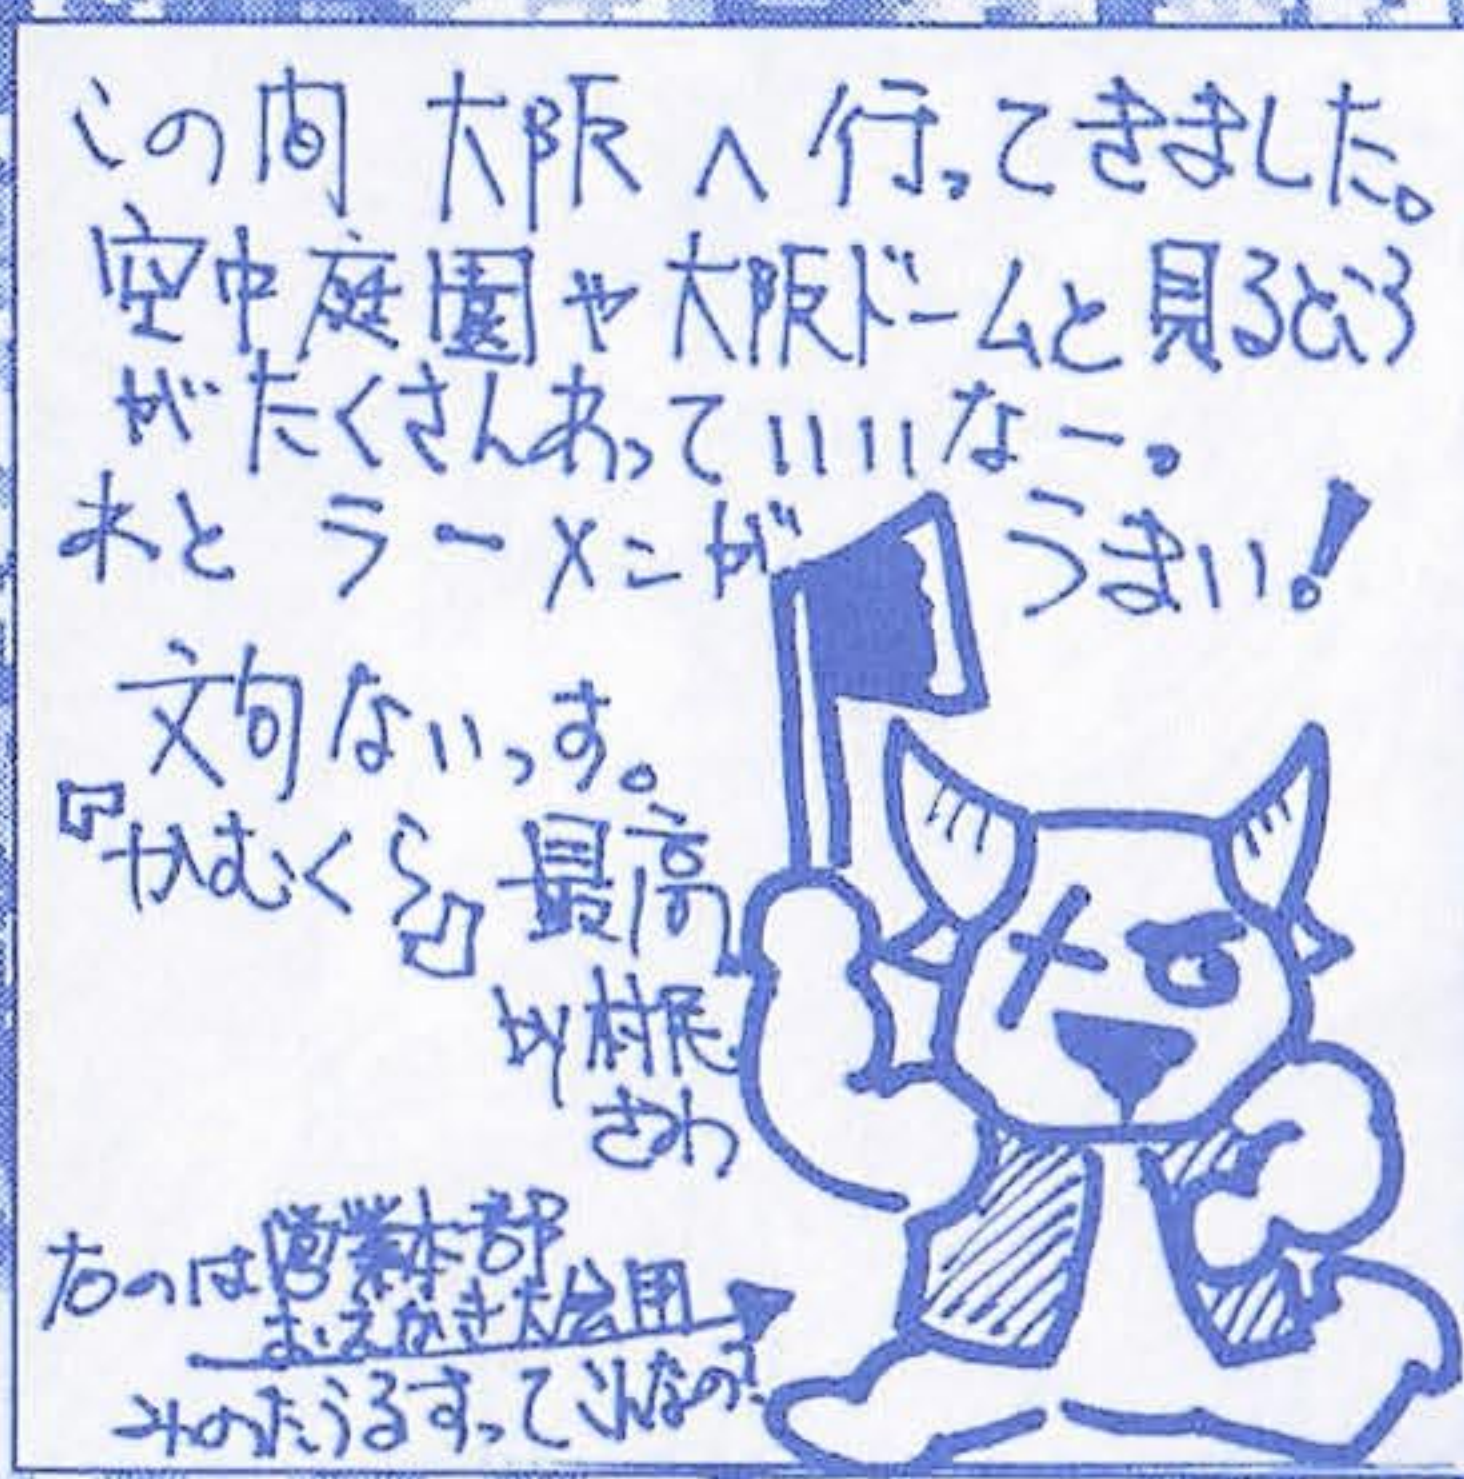 この間 大阪へ行ってきました。
空中庭園や大阪ドームと見るところ
がたくさんあっていいなー。
あと ラーメンが うまい!
文句ないっす。
『かむくら』最高
by 村民
さわ
右のは営業本部
おえかき大会用
みのたうるすってこんなの?